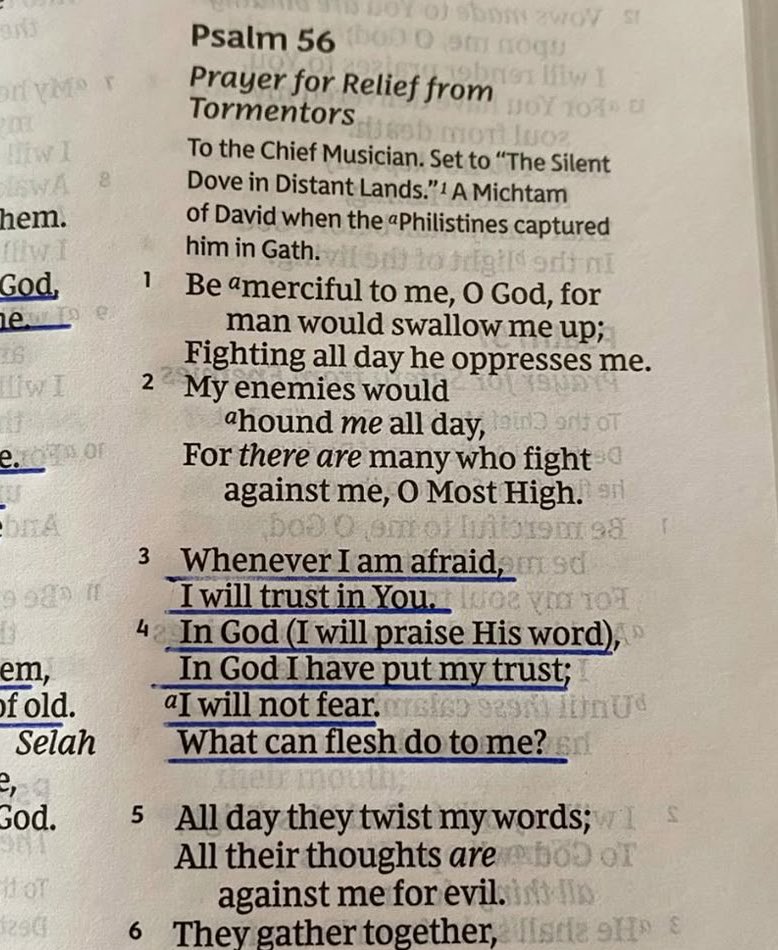 hem.
God,
e.
em,
of old.
Selah
e,
God.
Psalm 56
Prayer for Relief from
Tormentors
To the Chief Musician. Set to “The Silent
Dove in Distant Lands.”1 A Michtam
of David when the aPhilistines captured
him in Gath.
1 Be amerciful to me, O God, for
man would swallow me up;
Fighting all day he oppresses me.
2 My enemies would
ahound me all day,
For there are many who fight
against me, O Most High.
3 Whenever I am afraid,
I will trust in You.
4 In God (I will praise His word),
In God I have put my trust;
aI will not fear.
What can flesh do to me?
5 All day they twist my words;
All their thoughts are
against me for evil.
6 They gather together,